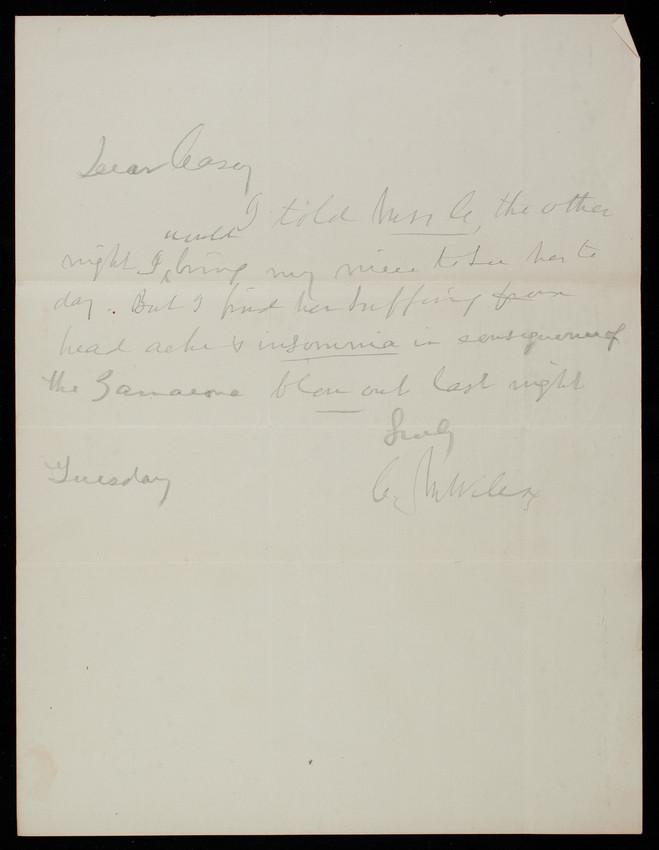 Dear Casey
I told Mrs C, the other
would
night I bring my niece to see her to
day. But I find her suffering from
head ache & insomnia in consequence of
the blow out last night
Truly
Tuesday
C. M. Wilcox